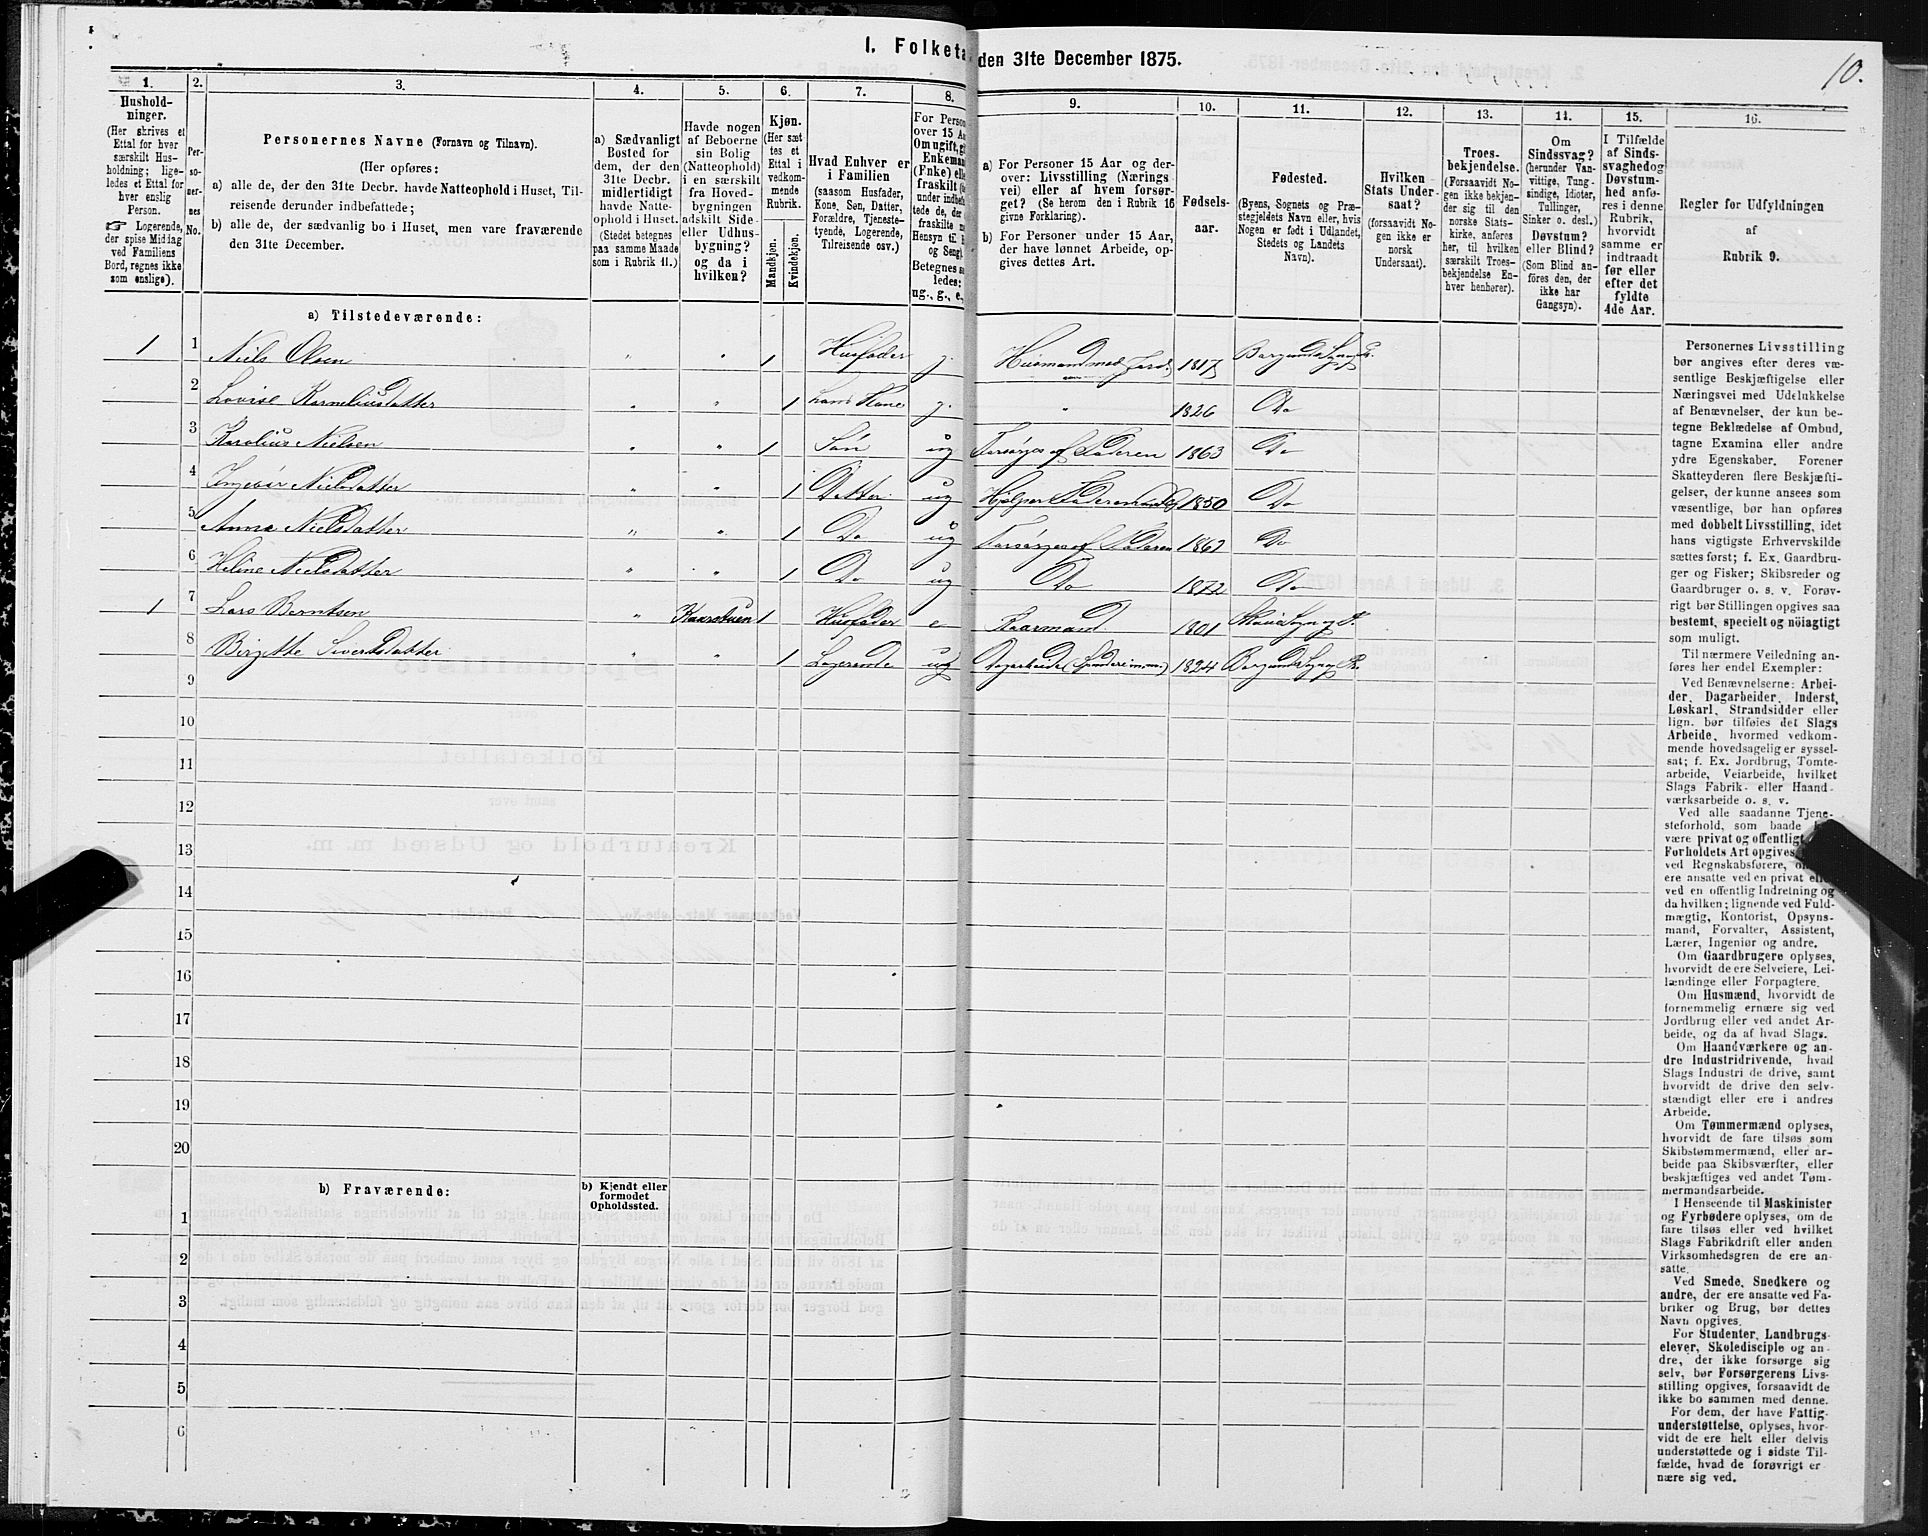 I. Folketa den 31te December 1875.
10.
1.
Hushold-
ninger.
(Her skrives et
Ettal for hver
særskilt Hus-
holdning; lige-
ledes et Ettal for
hver enslig
Person.
☞ Logerende,
der spise Middag
ved Familiens
Bord, regnes ikke
som enslige).
2.
Per-
so-
ner-
nes
No.
3.
Personernes Navne (Fornavn og Tilnavn).
(Her opføres:
a) alle de, der den 31te Decbr. havde Natteophold i Huset, Til-
reisende derunder indbefattede;
b) alle de, der sædvanlig bo i Huset, men vare fraværende
den 31te December.
4.
a) Sædvanligt
Bosted for
dem, der den
31te Decbr.
midlertidigt
havde Natte-
ophold i Huset.
(Stedet betegnes
paa samme Maade
som i Rubrik 11.)
5.
Havde nogen
af Beboerne
sin Bolig
(Natteophold)
i en særskilt
fra Hoved-
bygningen
adskilt Side-
eller Udhus-
bygning?
og da i
hvilken?
6.
Kjøn.
(Her sæt-
tes et
Ettal i
vedkom-
mende
Rubrik.
Mandkjøn.
Kvindekjøn.
7.
Hvad Enhver er
i Familien
(saasom Husfader,
Kone, Søn, Datter,
Forældre, Tjeneste-
tyende, Logerende,
Tilreisende osv.)
8.
For Person
over 15 Aa
Om ugift, gi
Enkeman
(Enke) elle
fraskilt (s
under indbef
tede de, der
fraskilte m
Hensyn til B
og Seng).
Betegnes sa
ledes:
ug., g., e.,
9.
a) For Personer 15 Aar og der-
over: Livsstilling (Nærings
vei) eller af hvem forsør-
get? (Se herom den i Rubrik 16
givne Forklaring).
b) For Personer under 15 Aar,
der have lønnet Arbeide, op-
gives dettes Art.
10.
Fødsels-
aar.
11.
Fødested.
(Byens, Sognets og Præ-
stegjeldets Navn eller, hvis
Nogen er født i Udlandet,
Stedets og Landets
Navn).
12.
Hvilken
Stats Under-
saat?
(forsaavidt No-
gen ikke er
norsk
Undersaat).
13.
Troes-
bekjendelse.
(Forsaavidt No-
gen ikke bekjen-
der sig til den
norske Stats-
kirke, anføres
her, til hvilken
særskilt Troes-
bekjendelse En-
hver henhører).
14.
Om
Sindssvag?
(herunder Van-
vittige, Tung-
sindige, Idioter,
Tullinger,
Sinker o. desl.)
Døvstum?
eller Blind?
(Som Blind an-
føres den, der
ikke har
Gangsyn).
15.
I Tilfælde
af Sinds-
svaghed og
Døvstum-
hed anfø-
res i denne
Rubrik,
hvorvidt
samme er
indtraadt
før eller
efter det
fyldte
4de Aar.
16.
Regler for Udfyldningen
af
Rubrik 9.
a) Tilstedeværende:
1 1 Niels Olsen " " 1 Husfader g. Husmand med Jord 1817
2 Lovise Korneliusdatter " " 1 hans Kone g. " 1826 Do
3 Karolius Nielsen " " 1 Søn ug Forsørges af Faderen 1863 Do
4 Ingebør Nielsdatter " " 1 Datter ug Hjelper 1850 Do
5 Anna Nielsdatter " " 1 Do ug Forsørges af Faderen 1867 Do
6 Heline Nielsdatter " " 1 Do ug Do 1872 Do
1 7 Lars Berntsen " Kaarstuen 1 Husfader e Kaarmand 1801
8 Birgitte Sivertsdatter " " 1 Logerende ug 1824
9
10
11
12
13
14
15
16
17
18
19
20
b) Fraværende:
b) Kjendt eller
formodet
Opholdssted.
1
2
3
4
5
6
Personernes Livsstilling
bør angives efter deres væ-
sentlige Beskjæftigelse eller
Næringsvei med Udelukkelse
af Benævnelser, der kun be-
tegne Beklædelse af Ombud,
tagne Examina eller andre
ydre Egenskaber. Forener
Skatteyderen flere Beskjæfti-
gelser, der kunne ansees som
væsentlige, bør han opføres
med dobbelt Livsstilling, idet
hans vigtigste Erhvervskilde
sættes først; f. Ex. Gaardbru-
ger og Fisker; Skibsreder og
Gaardbruger o. s. v. Forøv-
rigt bør Stillingen opgives saa
bestemt, specielt og nöiagtigt
som muligt.
Til nærmere Veiledning an-
føres her endel Exempler:
Ved Benævnelserne: Arbei-
der, Dagarbeider, Inderst,
Løskarl, Strandsidder eller
lign. bør tilføies det Slags
Arbeide, hvormed vedkom-
mende hovedsagelig er syssel-
sat; f. Ex. Jordbrug, Tomte-
arbeide, Veiarbeide, hvilket
Slags Fabrik- eller Haand-
værksarbeide o. s. v.
Ved alle saadanne Tjene-
steforhold, som baade
være privat og offentligt
Forholdets Art opgives,
ved Regnskabsførere,
ere ansatte ved en privat
ved en offentlig Indretning og
da hvilken; lignende ved Fuld-
mægtig, Kontorist, Opsyns-
mand, Forvalter, Assistent,
Lærer, Ingeniør og andre.
Om Gaardbrugere oplyses,
hvorvidt de ere Selveiere, Lei-
lændinge eller Forpagtere.
Om Husmænd, hvorvidt de
fornemmelig ernære sig ved
Jordbrug eller ved andet Ar-
beide, og da af hvad Slags.
Om Haandværkere og an-
dre Industridrivende, hvad
Slags Industri de drive, samt
hvorvidt de drive den selv-
stændigt eller ere i andres
Arbeide.
Om Tømmermænd oplyses,
hvorvidt de fare tilsøs som
Skibstømmermænd, eller ar-
beide paa Skibsværfter, eller
beskjæftiges ved andet Tøm-
mermandsarbeide.
I Henseende til Maskinister
og Fyrbødere oplyses, om de
fare tilsøs eller ved hvilket
Slags Fabrikdrift eller anden
Virksomhedsgren de ere an-
satte.
Ved Smede, Snedkere og
andre, der ere ansatte ved Fa-
briker og Brug, bør dettes
Navn opgives.
For Studenter, Landbrugs-
elever, Skoledisciple og an-
dre, der ikke forsørge sig
selv, bør Forsørgerens Livs-
stilling opgives, forsaavidt de
ikke bo sammen med denne.
For dem, der have Fattig-
understøttelse, oplyses, hvor-
vidt de ere helt eller delvis
understøttede og i sidste Til-
fælde, hvad de forøvrigt er-
nære sig ved.